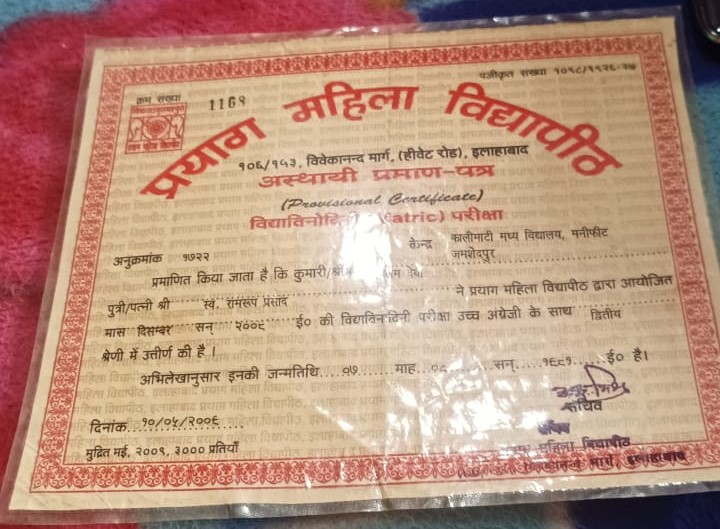 क्रम संख्या 1169
पंजीकृत संख्या १०९८/१९२६-२७
प्रयाग महिला विद्यापीठ
१०६/१५३, विवेकानन्द मार्ग, (हीवेट रोड), इलाहाबाद
अस्थायी प्रमाण-पत्र
(Provisional Certificate)
विद्याविनोदिनी (Matric) परीक्षा
अनुक्रमांक १७२२ केन्द्र कालीमाटी मध्य विद्यालय, मनीफीट
जमशेदपुर
प्रमाणित किया जाता है कि कुमारी/
पुत्री/पत्नी श्री स्व. रामरूप प्रसाद ने प्रयाग महिला विद्यापीठ द्वारा आयोजित
मास दिसम्बर सन् ई० की परीक्षा उच्च अंग्रेजी के साथ द्वितीय
श्रेणी में उत्तीर्ण की है।
अभिलेखानुसार इनकी जन्मतिथि माह सन् ई० है।
सचिव
दिनांक
मुद्रित मई, २००९, ३००० प्रतियाँ
महिला विद्यापीठ
मार्ग, इलाहाबाद